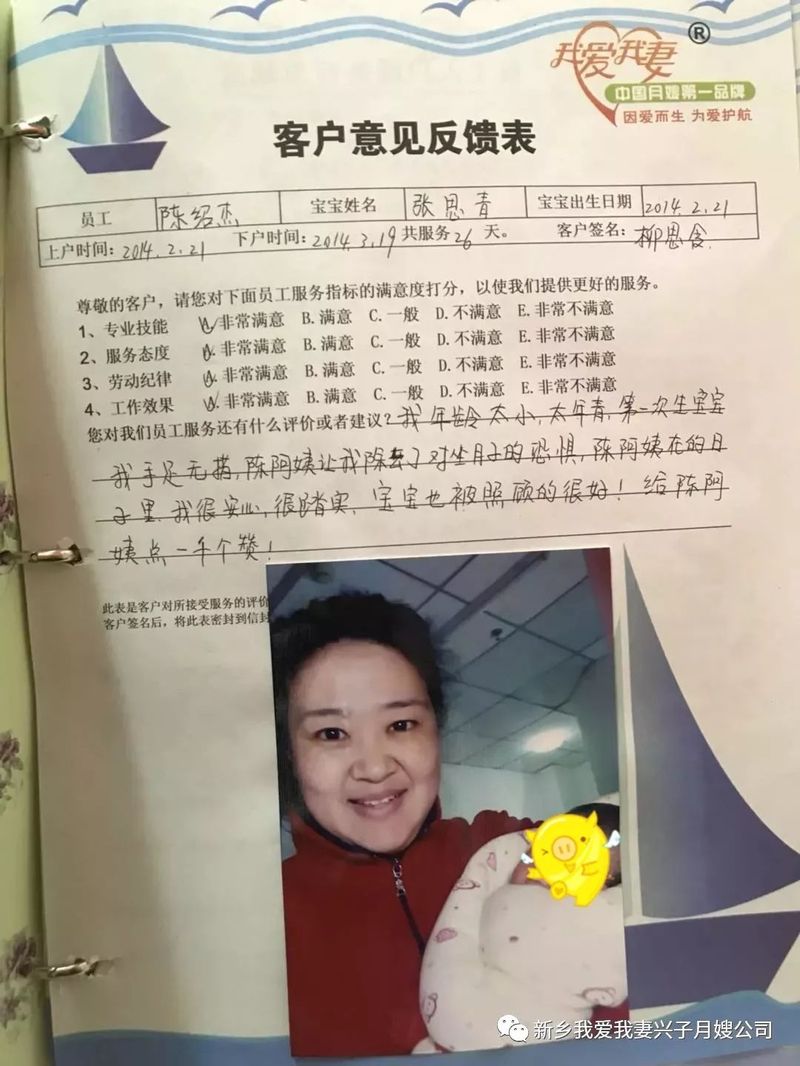 我爱我妻®
中国月嫂第一品牌
因爱而生 为爱护航
客户意见反馈表
员工 陈绍杰 宝宝姓名 张思青 宝宝出生日期 2014.2.21
上户时间：2014.2.21 下户时间：2014.3.19 共服务26天。 客户签名：柳思含
尊敬的客户，请您对下面员工服务指标的满意度打分，以使我们提供更好的服务。
1、专业技能 A.非常满意 B.满意 C.一般 D.不满意 E.非常不满意
2、服务态度 A.非常满意 B.满意 C.一般 D.不满意 E.非常不满意
3、劳动纪律 A.非常满意 B.满意 C.一般 D.不满意 E.非常不满意
4、工作效果 A.非常满意 B.满意 C.一般 D.不满意 E.非常不满意
您对我们员工服务还有什么评价或者建议？我年龄太小，太年青，第一次生宝宝
我手足无措，陈阿姨让我除去了对坐月子的恐惧，陈阿姨在的日
子里，我很安心，很踏实，宝宝也被照顾的很好！给陈阿
姨点一千个赞！
此表是客户对所接受服务的评价
客户签名后，将此表密封到信封
新乡我爱我妻兴子月嫂公司